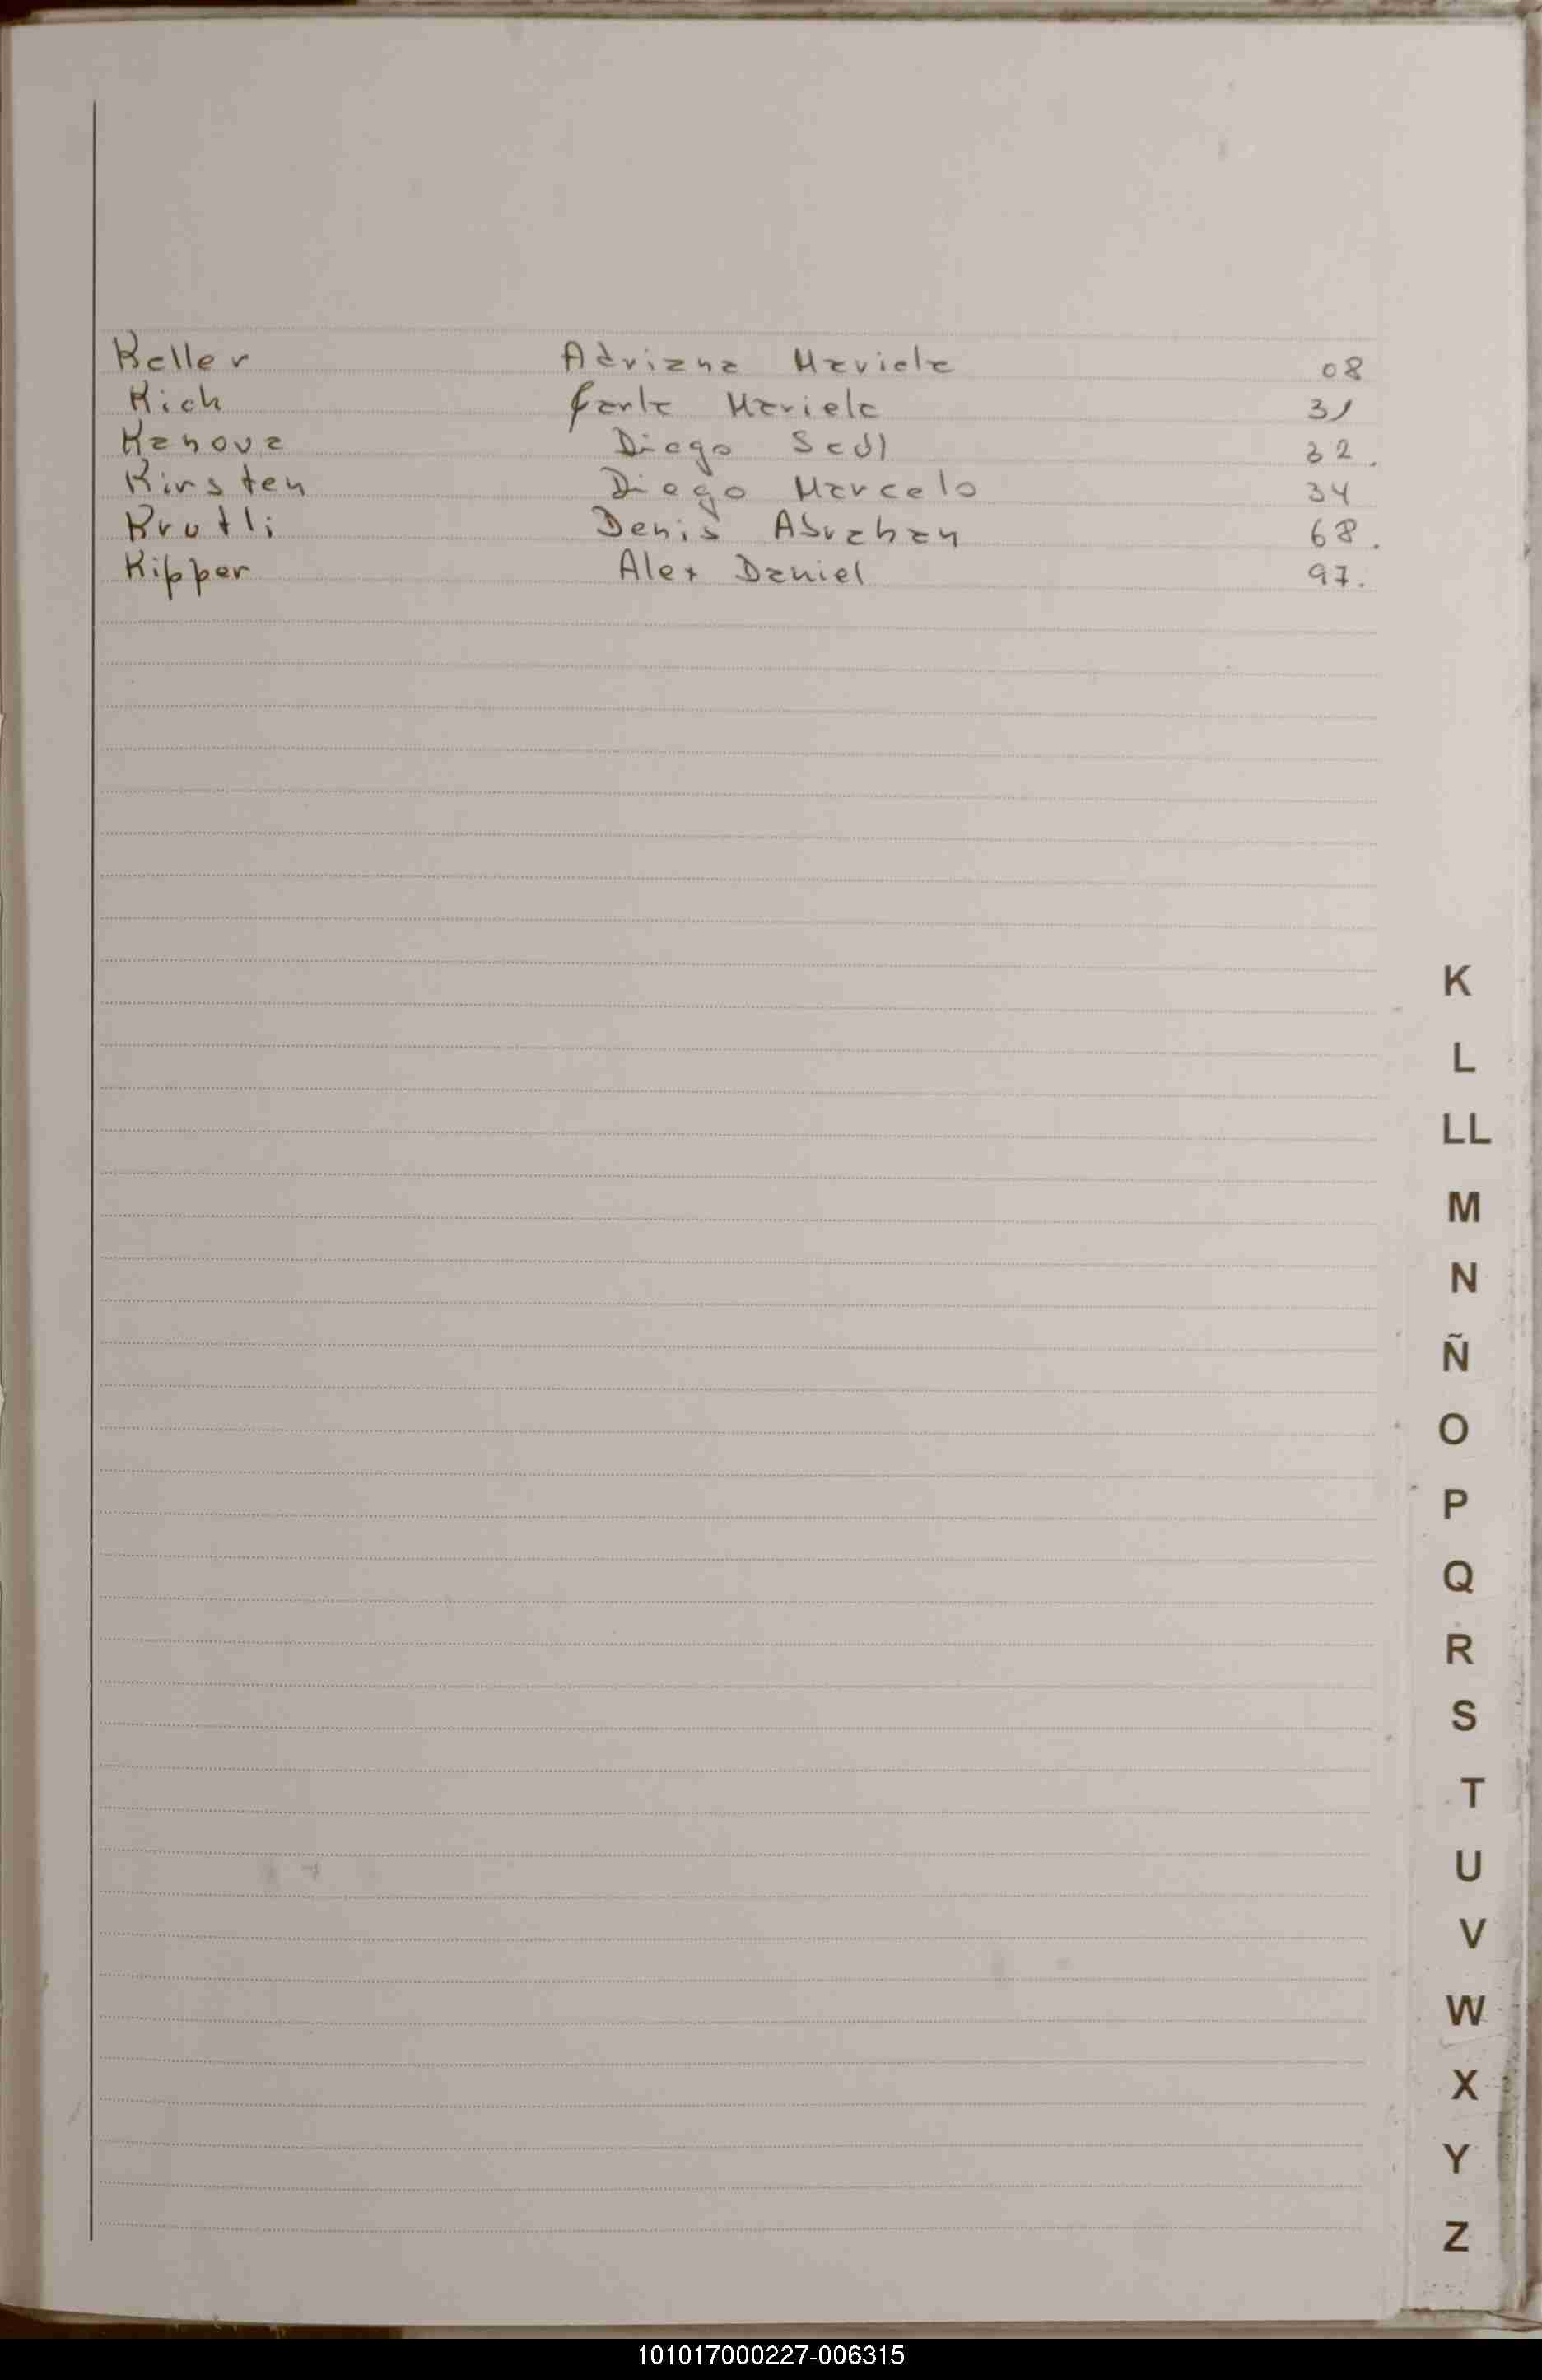 Keller Adriana Mariela 08
Kich Carla Mariela 31
Kanova Diego Seúl 32.
Kirsten Diego Marcelo 34
Krutli Denis Abrahan 68.
Kipper Alex Daniel 97.
K
L
LL
M
N
Ñ
O
P
Q
R
S
T
U
V
W
X
Y
Z
101017000227-006315